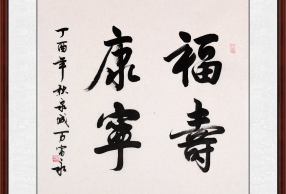 福壽
康寧
丁酉年秋